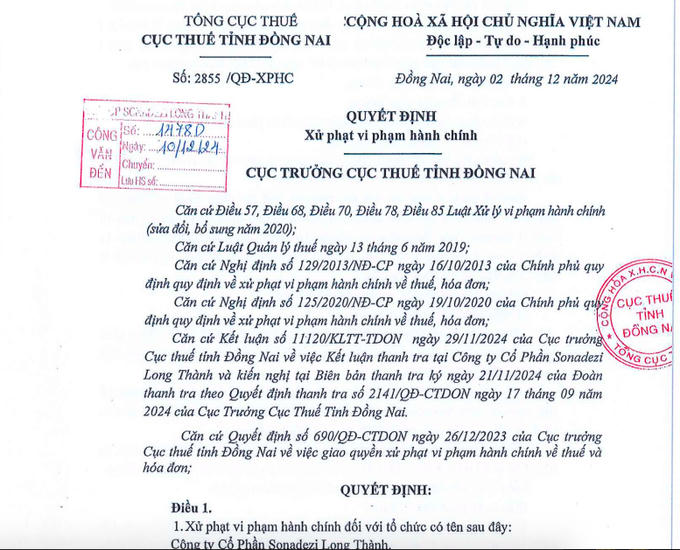 TỔNG CỤC THUẾ
CỤC THUẾ TỈNH ĐỒNG NAI
CỘNG HOÀ XÃ HỘI CHỦ NGHĨA VIỆT NAM
Độc lập - Tự do - Hạnh phúc
Số: 2855 /QĐ-XPHC
Đồng Nai, ngày 02 tháng 12 năm 2024
CP SONADEZI LONG THÀNH
CÔNG VĂN ĐẾN
Số: 1478D
Ngày: 10/12/24
Chuyển:
Lưu HS số:
QUYẾT ĐỊNH
Xử phạt vi phạm hành chính
CỤC TRƯỞNG CỤC THUẾ TỈNH ĐỒNG NAI
Căn cứ Điều 57, Điều 68, Điều 70, Điều 78, Điều 85 Luật Xử lý vi phạm hành chính
(sửa đổi, bổ sung năm 2020);
Căn cứ Luật Quản lý thuế ngày 13 tháng 6 năm 2019;
Căn cứ Nghị định số 129/2013/NĐ-CP ngày 16/10/2013 của Chính phủ quy
định quy định về xử phạt vi phạm hành chính về thuế, hóa đơn;
Căn cứ Nghị định số 125/2020/NĐ-CP ngày 19/10/2020 của Chính phủ quy
định quy định về xử phạt vi phạm hành chính về thuế, hóa đơn;
Căn cứ Kết luận số 11120/KLTT-TDON ngày 29/11/2024 của Cục trưởng
Cục thuế tỉnh Đồng Nai về việc Kết luận thanh tra tại Công ty Cổ Phần Sonadezi
Long Thành và kiến nghị tại Biên bản thanh tra ký ngày 21/11/2024 của Đoàn
thanh tra theo Quyết định thanh tra số 2141/QĐ-CTDON ngày 17 tháng 09 năm
2024 của Cục Trưởng Cục Thuế Tỉnh Đồng Nai.
CỘNG HÒA X.H.C.N
CỤC THUẾ
TỈNH
ĐỒNG NAI
TỔNG CỤC
Căn cứ Quyết định số 690/QĐ-CTDON ngày 26/12/2023 của Cục trưởng
Cục thuế tỉnh Đồng Nai về việc giao quyền xử phạt vi phạm hành chính về thuế và
hóa đơn;
QUYẾT ĐỊNH:
Điều 1.
1. Xử phạt vi phạm hành chính đối với tổ chức có tên sau đây:
Công ty Cổ Phần Sonadezi Long Thành.